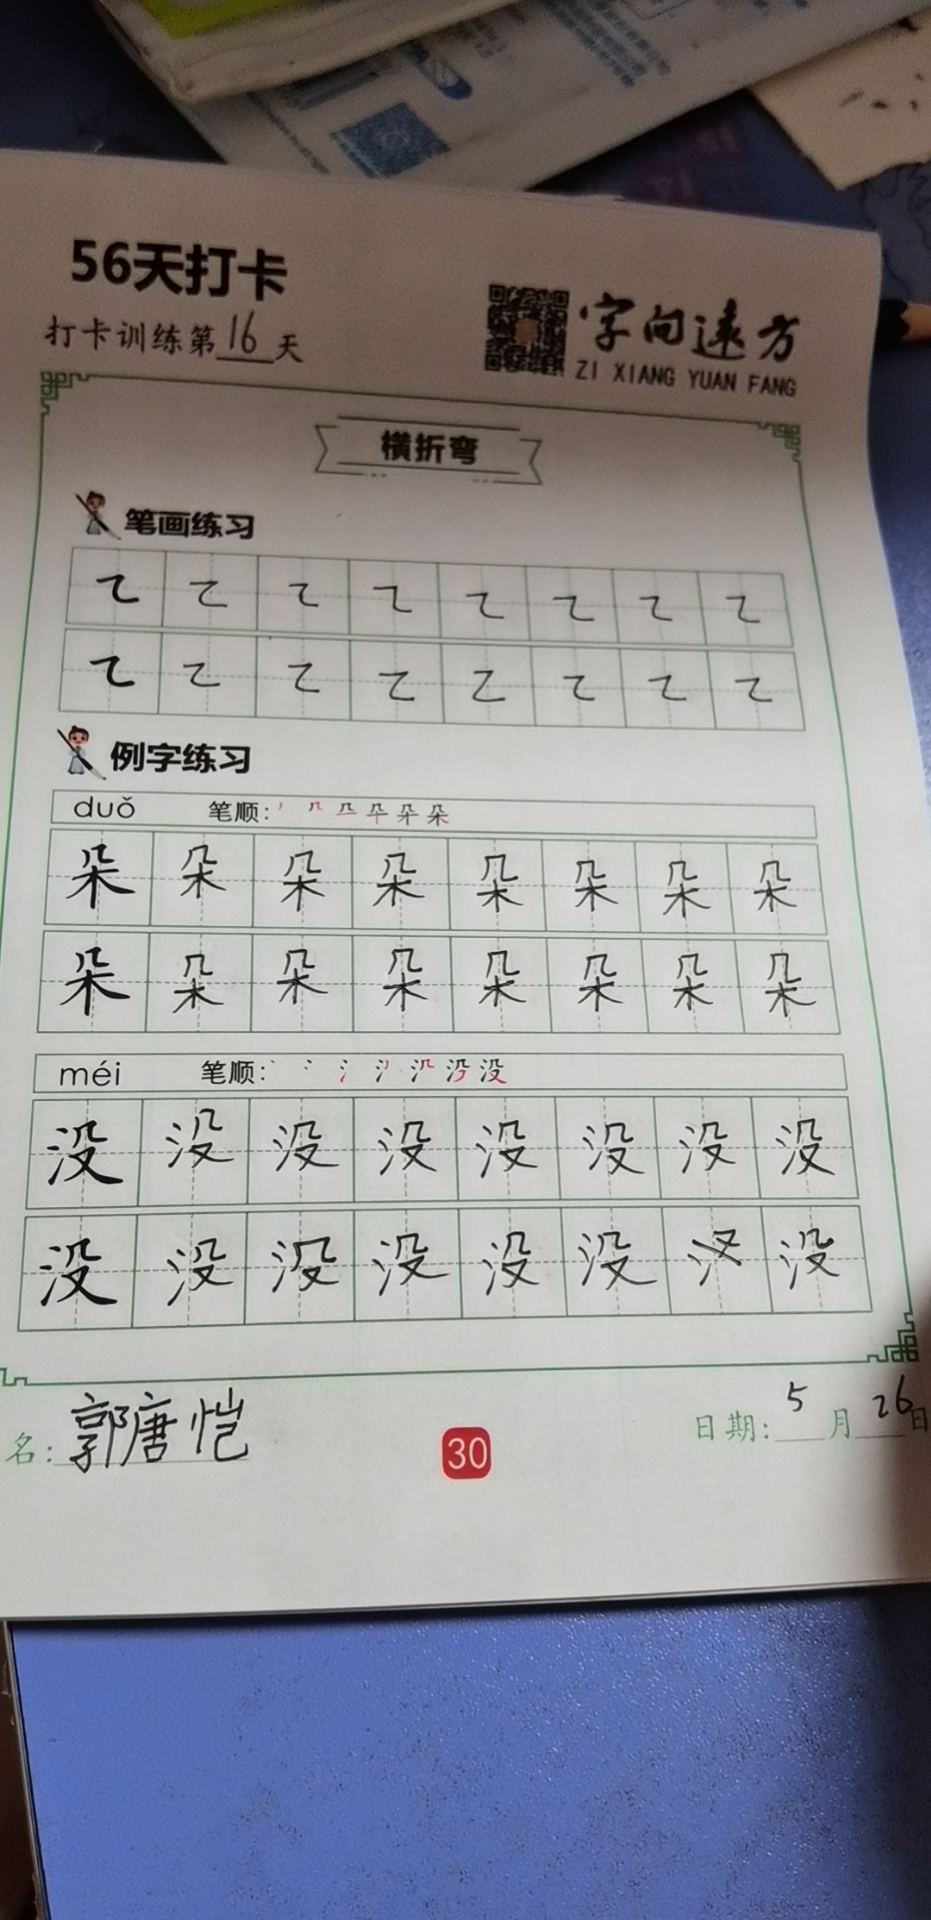 56天打卡
打卡训练第16天
字向远方
ZI XIANG YUAN FANG
横折弯
笔画练习
㇍ ㇍ ㇍ ㇍ ㇍ ㇍ ㇍ ㇍
㇍ ㇍ ㇍ ㇍ ㇍ ㇍ ㇍ ㇍
例字练习
duǒ 笔顺:
朵 朵 朵 朵 朵 朵 朵 朵
朵 朵 朵 朵 朵 朵 朵 朵
méi 笔顺:
没 没 没 没 没 没 没 没
没 没 没 没 没 没 没
名:郭唐恺
30
日期:5月26日